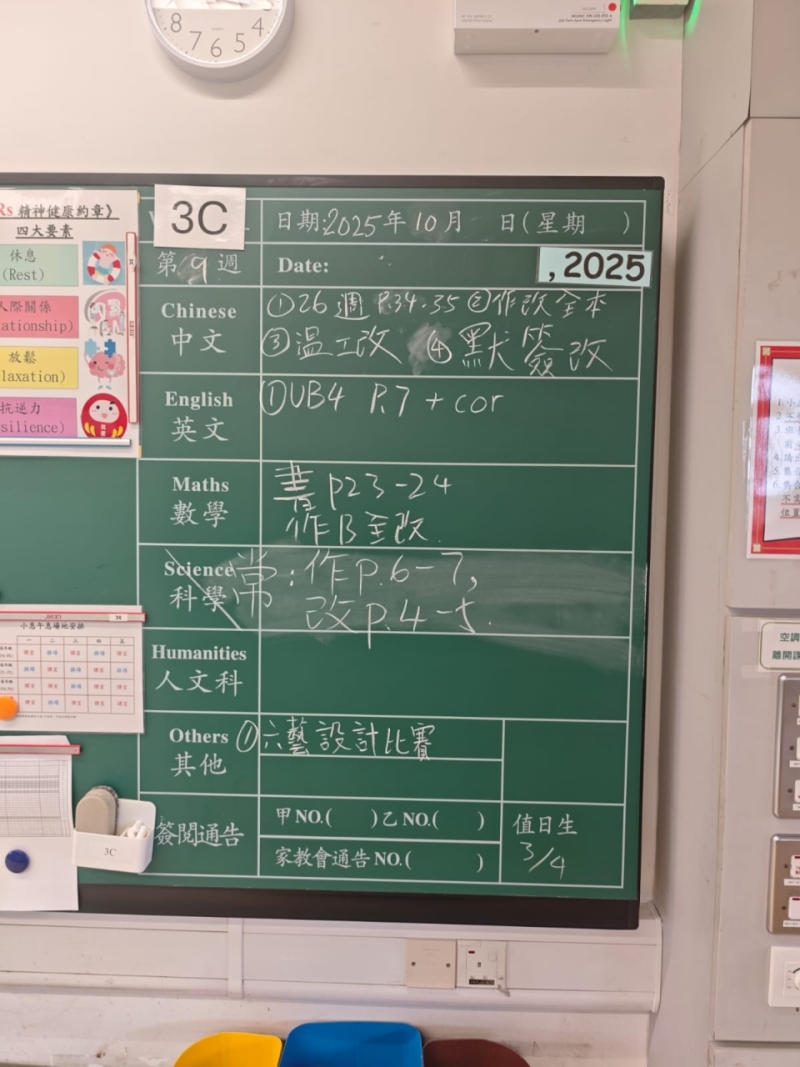 8 7 6 5 4
Rs 精神健康約章》
四大要素
休息
(Rest)
人際關係
ationship)
放鬆
laxation)
抗逆力
silience)
3C
日期:2025年10月 日(星期 )
第9週
Date:
, 2025
Chinese
中文
①26週 P.34-35 ②作改全本
③温工改 ④默簽改
English
英文
①UB4 P.7 + cor
Maths
數學
書 p23-24
作B全改.
Science
科學
常:作p.6-7,
改p.4-5.
Humanities
人文科
Others
其他
①六藝設計比賽
簽閱通告
甲NO.( )乙NO.( )
家教會通告NO.( )
值日生
3/4
小息午息場地安排
一 二 三 四 五
3C
空調
離開課